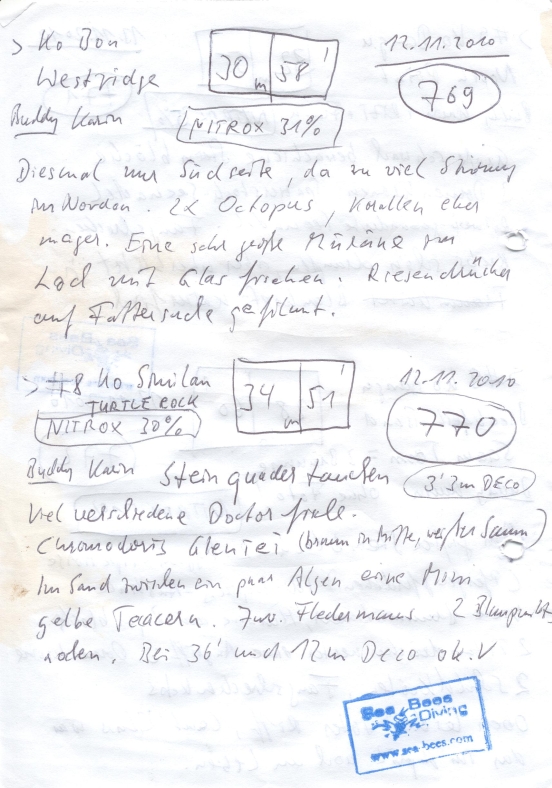 > Ko Bon
30 m 58'
12.11.2010
Westridge
769
Buddy Karin
NITROX 31%
Diesmal nur Südseite, da zu viel Strömung
im Norden. 2x Octopus, Korallen eher
mager. Eine sehr große Muräne im
Loch mit Glasfischen. Riesendrücker
auf Futtersuche gefilmt.
> #8 Ko Similan
34 m 51'
12.11.2010
TURTLE ROCK
NITROX 30%
770
Buddy Karin Steinquader tauchen
3' 3m DECO
Viel verschiedene Doctorfische.
Chromodoris (braun in Mitte, weißer Saum)
Im Sand zwischen ein paar Algen eine Mini
gelbe. Fledermaus 2 Blaupunkt
rochen. Bei 36' und 12m Deco ok. V
Sea Bees
Diving
www.sea-bees.com